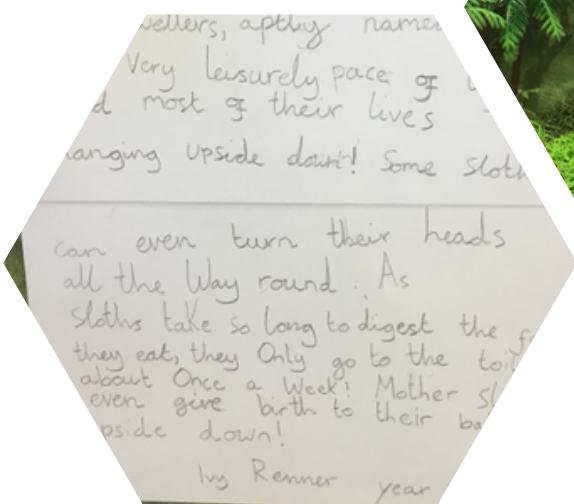 wellers, aptly name
Very leisurely pace of
d most of their lives
anging upside down! Some slot
can even turn their heads
all the Way round. As
Sloths take so long to digest the f
they eat, they Only go to the toil
about Once a Week! Mother sl
even give birth to their ba
pside down!
Ivy Renner year